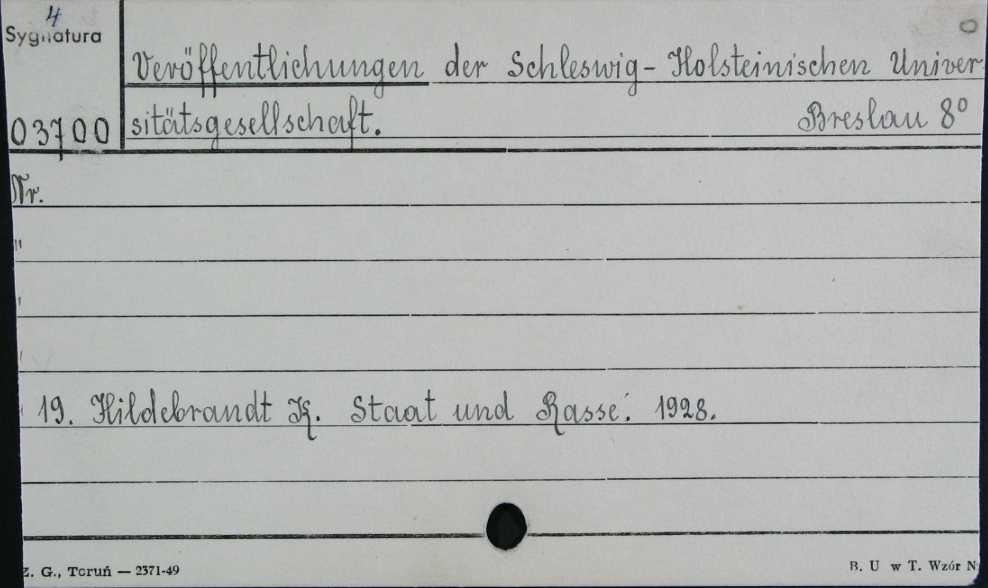 4
Sygnatura
03700
Veröffentlichungen der Schleswig-Holsteinischen Univer
sitätsgesellschaft. Breslau 8°
Nr.
19. Hildebrandt K. Staat und Rasse. 1928.
Z. G., Toruń — 2371-49
B. U w T. Wzór N